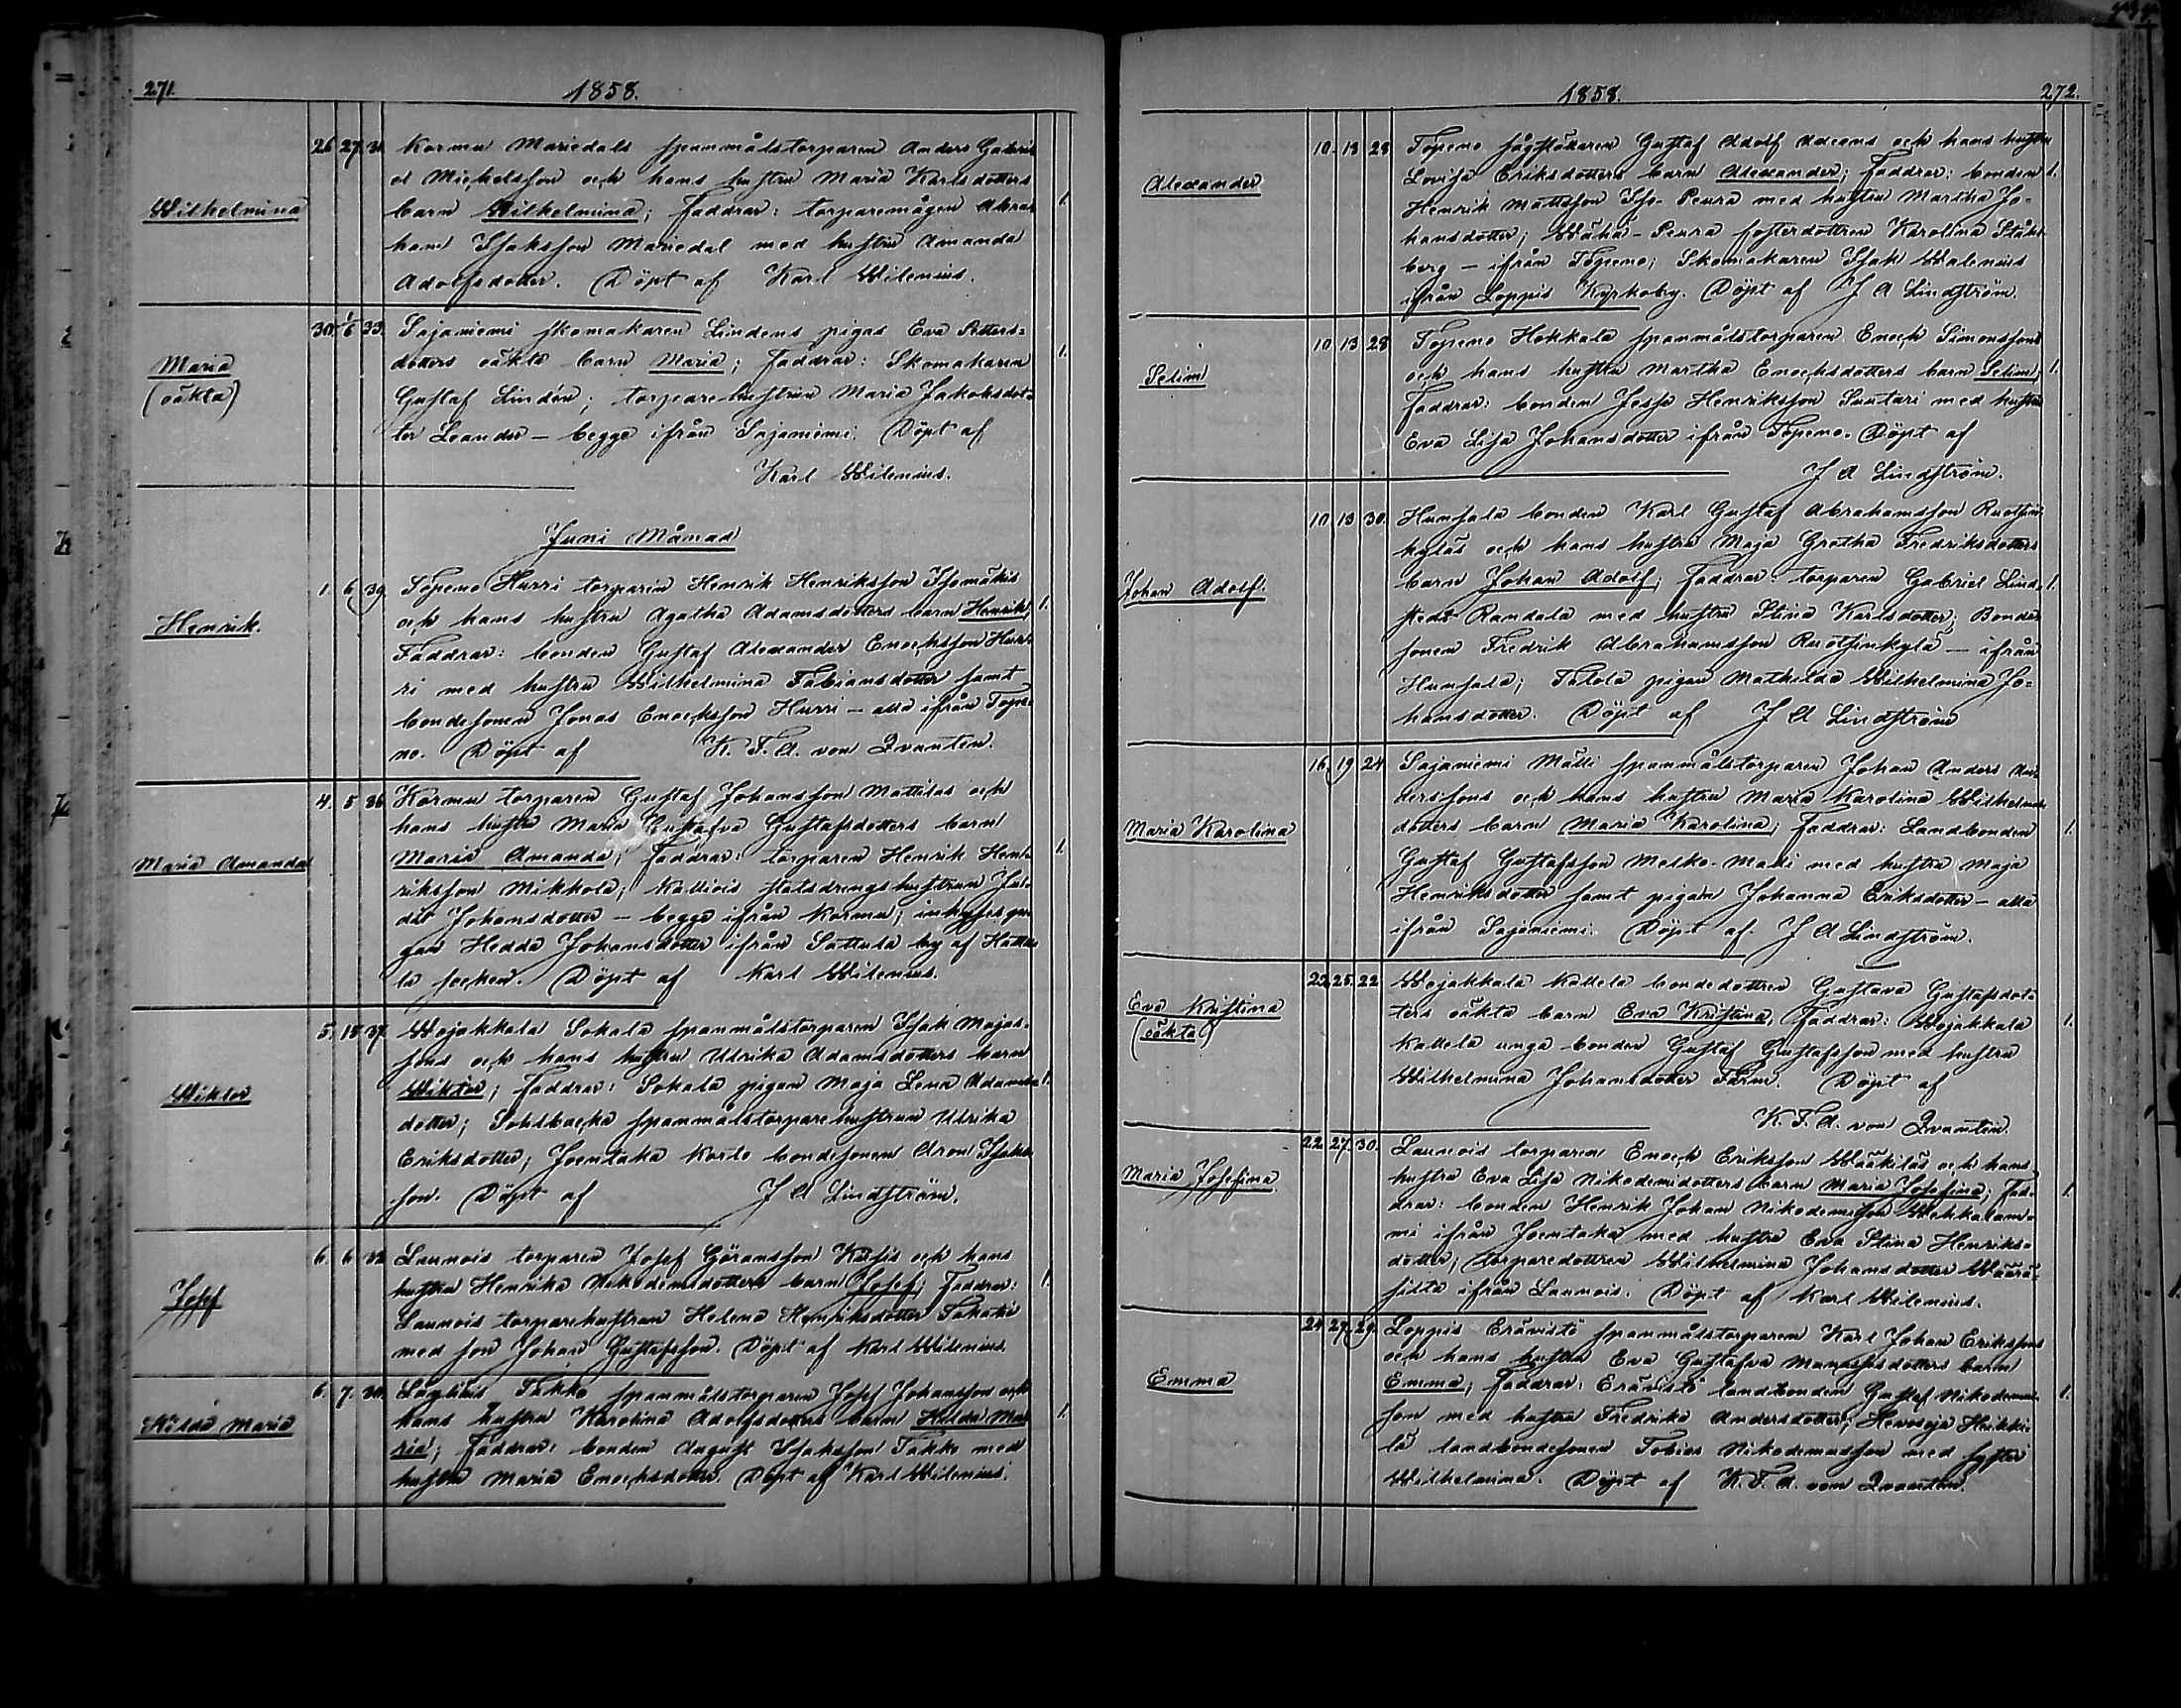 271.
1858.
Wilhelmina
26. 27. 31. Kormu Mariedals spanmålstorparen Anders Gabri-
el Michelsson och hans hustru Maria Karlsdotters
barn Wilhelmina; Faddrar: torparemågen Abra- 1.
ham Isaksson Mariedal med hustru Amanda
Adolfsdotter. Döpt af Karl Wilenius.
Maria
(oäkta)
30. 1/6 33. Sajaniemi skomakaren Lindens pigas Eva Petters-
dotters oäkta barn Maria; Faddrar: Skomakaren 1.
Gustaf Lindén; torparehustrun Maria Jakobsdot-
ter Leander – begge ifrån Sajaniemi. Döpt af
Karl Wilenius.
Juni Månad
Henrik.
1. 6. 39. Topeno Hurri torparen Henrik Henriksson Isomäkis
och hans hustru Agatha Adamsdotters barn Henrik; 1.
Faddrar: bonden Gustaf Alexander Enochsson Hur-
ri med hustru Wilhelmina Fabiansdotter samt
bondesonen Jonas Enochsson Hurri – alla ifrån Tope-
no. Döpt af K. F. A. von Qvanten.
Maria Amanda
4. 5 36 Kormu torparen Gustaf Johansson Mattilas och
hans hustru Maria Gustafva Gustafsdotters barn
Maria Amanda; Faddrar: torparen Henrik Hen- 1.
riksson Mikkola; Kalliois statsdrengshustrun Jul-
dit Johansdotter – begge ifrån Kormu; inhysespi-
gan Hedda Johansdotter ifrån Sattula by af Hattu-
la socken. Döpt af Karl Wilenius.
Wiktor
5. 13 37. Wojakkala Sokala spanmålstorparen Isak Majas-
sons och hans hustru Ulrika Adamsdotters barn
Wiktor; Faddrar: Sokala pigan Maja Lena Adams- 1.
dotter; Sohlbacka spanmålstorparehustrun Ulrika
Eriksdotter; Joentaka Korte bondesonen Aron Isaks-
son. Döpt af J A Lindström.
Josef
6. 6 32 Launois torparen Josef Göransson Kuusis och hans
hustru Henrika Nikodemidotters barn Josef; Faddrar: 1.
Launois torparehustrun Helena Henriksdotter Sakake
med son Johan Gustafsson. Döpt af Karl Wilenius.
Hilda Maria
6. 7. 30. Läyliäis Takko spanmålstorparen Josef Johansson och
hans hustru Karolina Adolfsdotters barn Hilda Ma- 1.
ria; Faddrar: bonden August Isaksson Takko med
hustru Maria Enochsdotter. Döpt af Karl Wilenius.
1858.
272.
Alexander
10. 13 28 Topeno sågställaren Gustaf Adolf Adeans och hans hustru
Lovisa Eriksdotters barn Alexander; Faddrar: bonden 1.
Henrik Mattsson Iso-Peura med hustru Martha Jo-
hansdotter; Wäha-Peura fosterdottren Karolina Ståhl-
berg – ifrån Topeno; Skomakaren Isak Walenius
ifrån Loppis Kyrkoby. Döpt af J A Lindström.
Selim
10 13 28 Topeno Hokkala spanmålstorparen Enoch Simonssons
och hans hustru Martha Enochsdotters barn Selim; 1.
Faddrar: bonden Jesse Henriksson Suutari med hustru
Eva Lisa Johansdotter ifrån Topeno. Döpt af
J A Lindström.
Johan Adolf.
10 13 30. Hunsala bonden Karl Gustaf Abrahamsson Ruotsin-
kyläs och hans hustru Maja Gretha Fredriksdotters
barn Johan Adolf; Faddrar: torparen Gabriel Lind- 1.
stedt Randala med hustru Stina Karlsdotter; Bonde-
sonen Fredrik Abrahamsson Ruotsinkylä – ifrån
Hunsala; Talola pigan Mathilda Wilhelmina Jo-
hansdotter. Döpt af J A Lindström
Maria Karolina
16. 19 24 Sajaniemi Mälli spanmålstorparen Johan Anders An-
derssons och hans hustru Maria Karolina Wilhelms-
dotters barn Maria Karolina; Faddrar: Landbonden 1.
Gustaf Gustafsson Melko-Mälli med hustru Maja
Henriksdotter samt pigan Johanna Eriksdotter – alla
ifrån Sajaniemi. Döpt af J A Lindström.
Eva Kristina
(oäkta)
22. 25. 22 Wojakkala Kallela bondedottren Gustava Gustafsdot-
ters oäkta barn Eva Kristina; Faddrar: Wojakkala 1.
Kallela unga bonden Gustaf Gustafsson med hustru
Wilhelmina Johansdotter Färm. Döpt af
K. F. A. von Qvanten.
Maria Josefina
22. 27. 30. Launois torparen Enoch Eriksson Wääkiläs och hans
hustru Eva Lisa Nikodemidotters barn Maria Josefina; Fad- 1.
drar: bonden Henrik Johan Nikodemisson Wehkalam-
mi ifrån Joentaka med hustru Eva Stina Henriks-
dotter; torparedottren Wilhelmina Johansdotter Wäärä-
silta ifrån Launois. Döpt af Karl Wilenius.
Emma
24 27. 29. Loppis Erävistö spanmålstorparen Karl Johan Erikssons
och hans hustru Eva Gustafva Manassesdotters barn
Emma; Faddrar: Erävistö landbonden Gustaf Nikodemus- 1.
son med hustru Fredrika Andersdotter; Hevosoja Heikki-
lä landbondesonen Tobias Nikodemusson med syster
Wilhelmina. Döpt af K. F. A. von Qvanten.